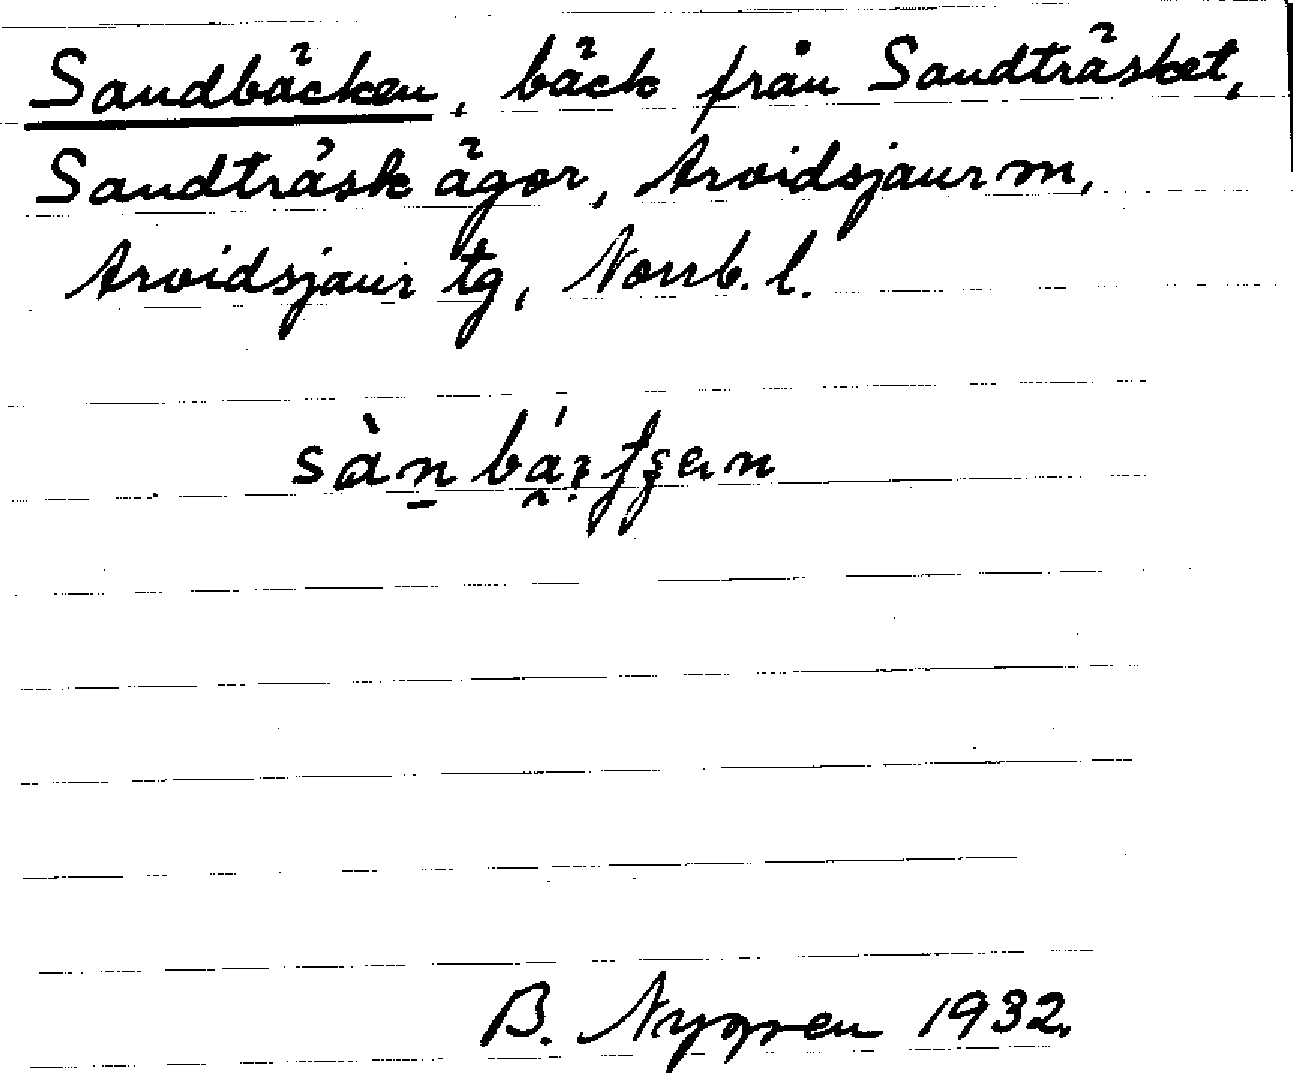 Sandbäcken, bäck från Sandträsket,
Sandträsk ägor, Arvidsjaur m,
Arvidsjaur tg, Norrb. l.
B. Nygren 1932.